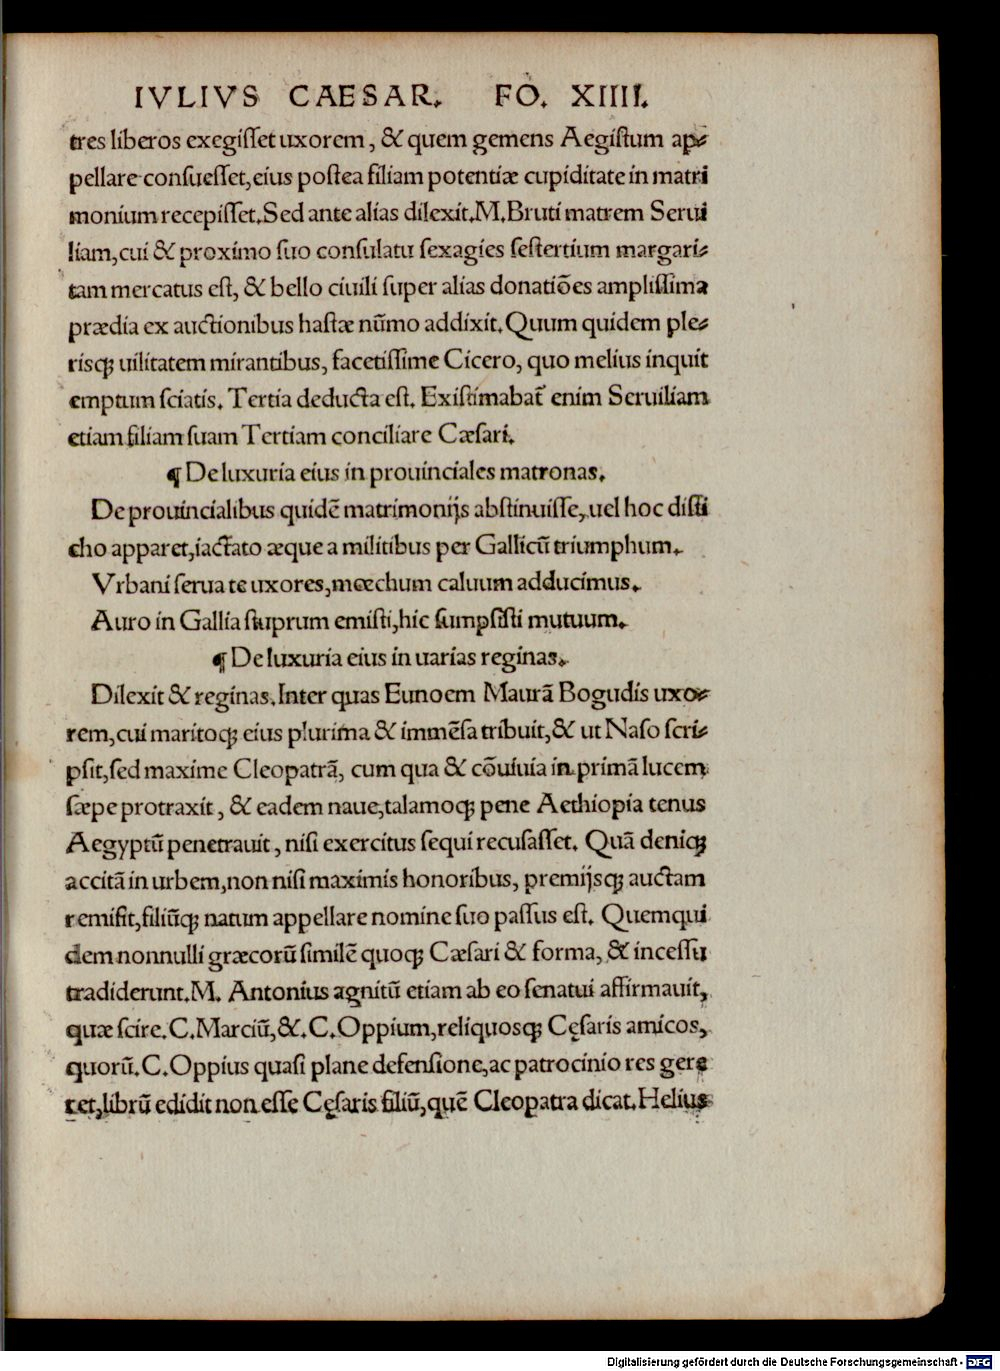 IVLIVS CAESAR. FO. XIIII.
tres liberos exegisset uxorem, & quem gemens Aegistum ap-
pellare consuesset, eius postea filiam potentiæ cupiditate in matri
monium recepisset. Sed ante alias dilexit. M. Bruti matrem Serui
liam, cui & proximo suo consulatu sexagies sestertium margari-
tam mercatus est, & bello ciuili super alias donatiões amplissima
prædia ex auctionibus hastæ nũmo addixit. Quum quidem ple-
risq; uilitatem mirantibus, facetissime Cicero, quo melius inquit
emptum sciatis. Tertia deducta est. Existimabat̃ enim Seruiliam
etiam filiam suam Tertiam conciliare Cæsari.
¶ De luxuria eius in prouinciales matronas.
De prouincialibus quidẽ matrimonijs abstinuisse, uel hoc disti
cho apparet, iactato æque a militibus per Gallicũ triumphum.
Vrbani serua te uxores, mœchum caluum adducimus.
Auro in Gallia stuprum emisti, hic sumpsisti mutuum.
¶ De luxuria eius in uarias reginas.
Dilexit & reginas. Inter quas Eunoem Maurã Bogudis uxo-
rem, cui maritoq; eius plurima & immẽsa tribuit, & ut Naso scri-
psit, sed maxime Cleopatrã, cum qua & cõuiuia in primã lucem
sæpe protraxit, & eadem naue, talamoq; pene Aethiopia tenus
Aegyptũ penetrauit, nisi exercitus sequi recusasset. Quã deniq;
accitã in urbem, non nisi maximis honoribus, premijsq; auctam
remisit, filiũq; natum appellare nomine suo passus est. Quemqui
dem nonnulli græcorũ similẽ quoq; Cæsari & forma, & incessu
tradiderunt. M. Antonius agnitũ etiam ab eo senatui affirmauit,
quæ scire. C. Marciũ, &. C. Oppium, reliquosq; Cęsaris amicos,
quorũ. C. Oppius quasi plane defensione, ac patrocinio res gere
ret, librũ edidit non esse Cęsaris filiũ, quẽ Cleopatra dicat. Helius
Digitalisierung gefördert durch die Deutsche Forschungsgemeinschaft - DFG